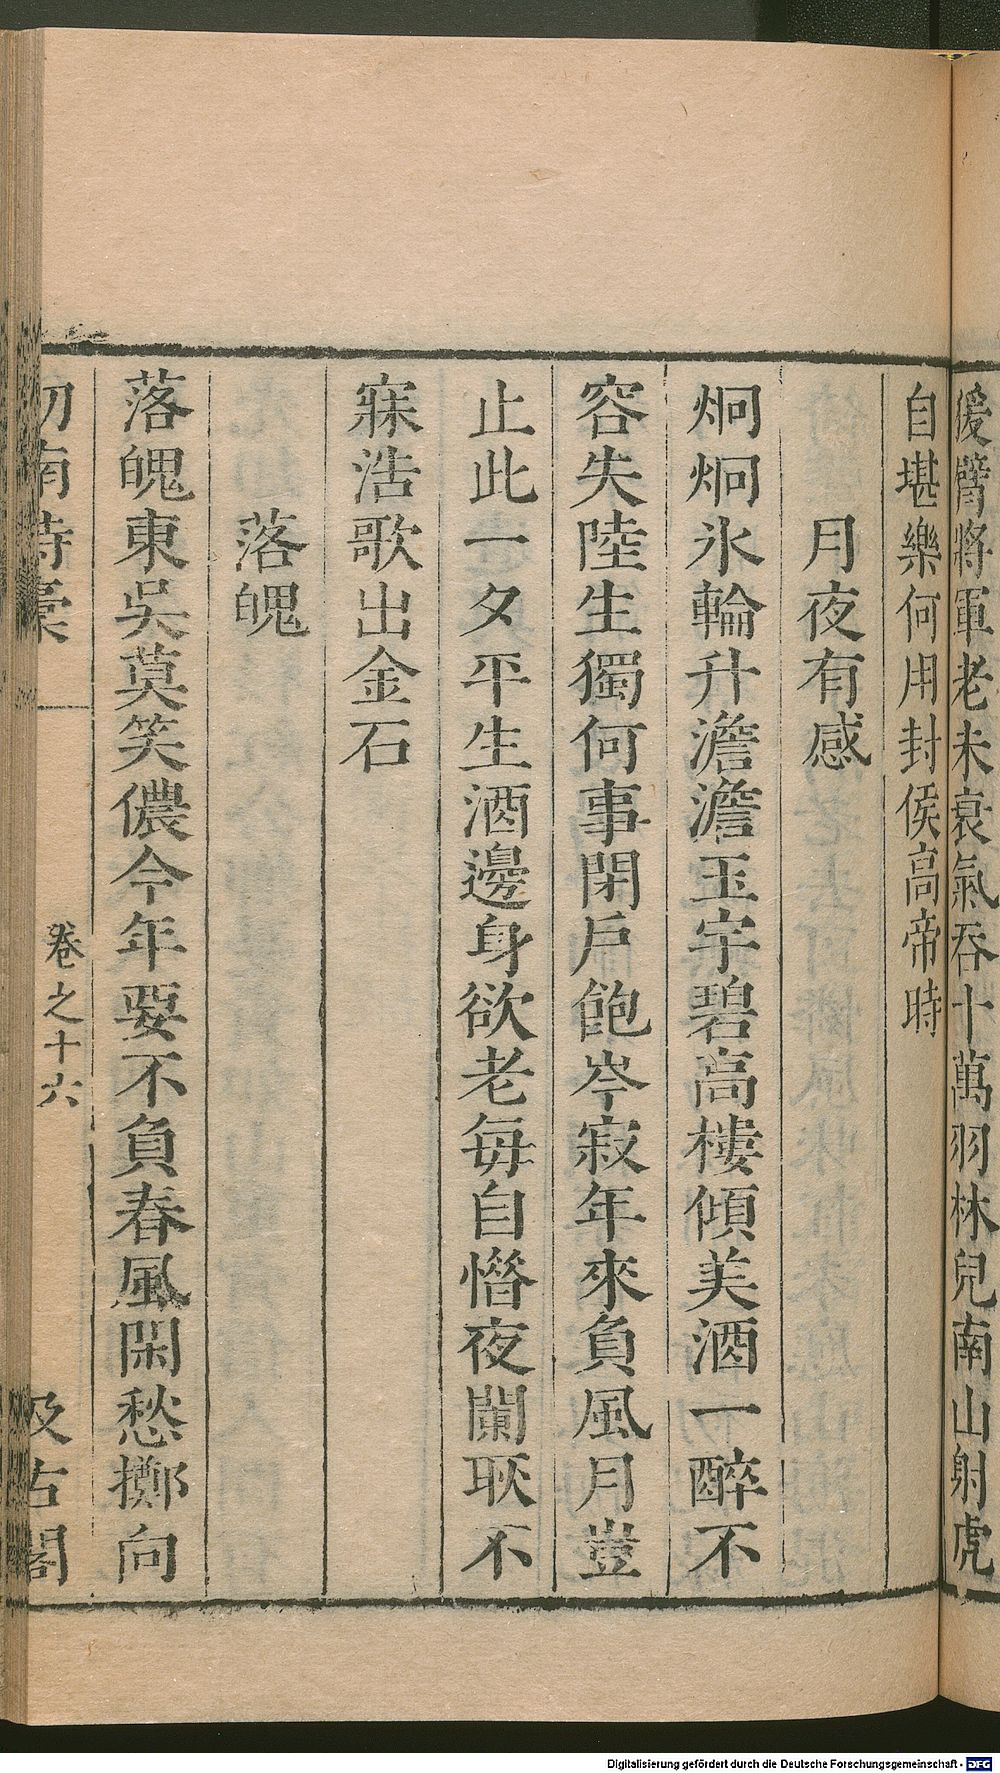 猨臂將軍老未衰氣吞十萬羽林兒南山射虎
自堪樂何用封侯高帝時
月夜有感
炯炯氷輪升澹澹玉宇碧高樓傾美酒一醉不
容失陸生獨何事閉戶飽岑寂年來負風月豈
止此一夕平生酒邊身欲老每自惜夜闌耿不
寐浩歌出金石
落魄
落魄東吳莫笑儂今年要不負春風閑愁擲向
劒南詩稾
卷之十六
汲古閣
Digitalisierung gefördert durch die Deutsche Forschungsgemeinschaft - DFG